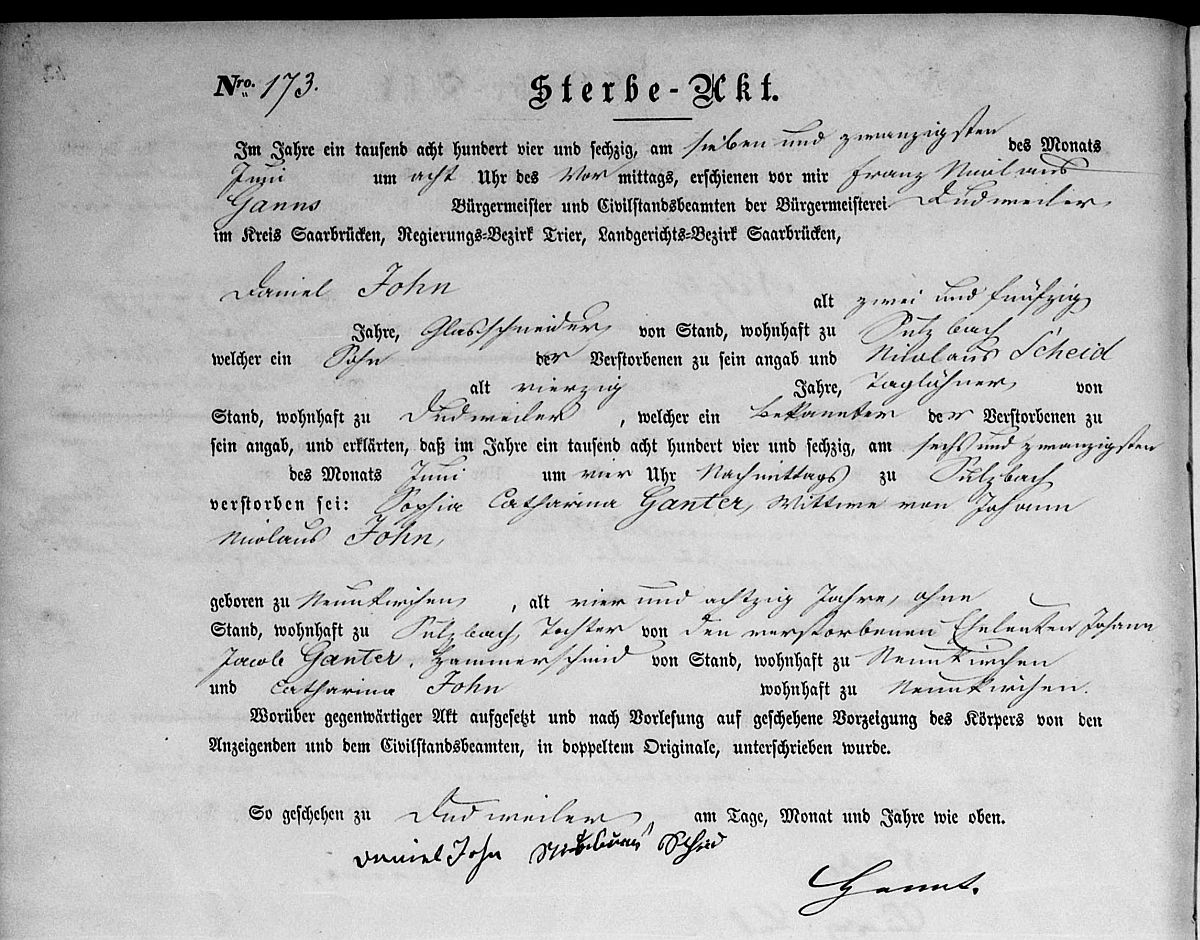 Nro. 173. Sterbe-Akt.
Im Jahre ein tausend acht hundert vier und sechzig, am sieben und zwanzigsten des Monats
Juni um acht Uhr des Vor mittags, erschienen vor mir Franz Nicolaus
Ganns Bürgermeister und Civilstandsbeamten der Bürgermeisterei Dudweiler
im Kreis Saarbrücken, Regierungs-Bezirk Trier, Landgerichts-Bezirk Saarbrücken,
Daniel John alt zwei und fünfzig
Jahre, Glasschneider von Stand, wohnhaft zu Sulzbach
welcher ein Sohn der Verstorbenen zu sein angab und Nicolaus Scheid
alt vierzig Jahre, Taglöhner von
Stand, wohnhaft zu Dudweiler, welcher ein Bekannter der Verstorbenen zu
sein angab, und erklärten, daß im Jahre ein tausend acht hundert vier und sechzig, am sechs und zwanzigsten
des Monats Juni um vier Uhr Nachmittags zu Sulzbach
verstorben sei: Sophia Catharina Ganter, Wittwe von Johann
Nicolaus John,
geboren zu Neunkirchen, alt vier und achtzig Jahre, ohne
Stand, wohnhaft zu Sulzbach, Tochter von den verstorbenen Eheleuten Johann
Jacob Ganter, Hammerschmid von Stand, wohnhaft zu Neunkirchen
und Catharina John wohnhaft zu Neunkirchen.
Worüber gegenwärtiger Akt aufgesetzt und nach Vorlesung auf geschehene Vorzeigung des Körpers von den
Anzeigenden und dem Civilstandsbeamten, in doppeltem Originale, unterschrieben wurde.
So geschehen zu Dudweiler, am Tage, Monat und Jahre wie oben.
Daniel John Nicolaus Scheid